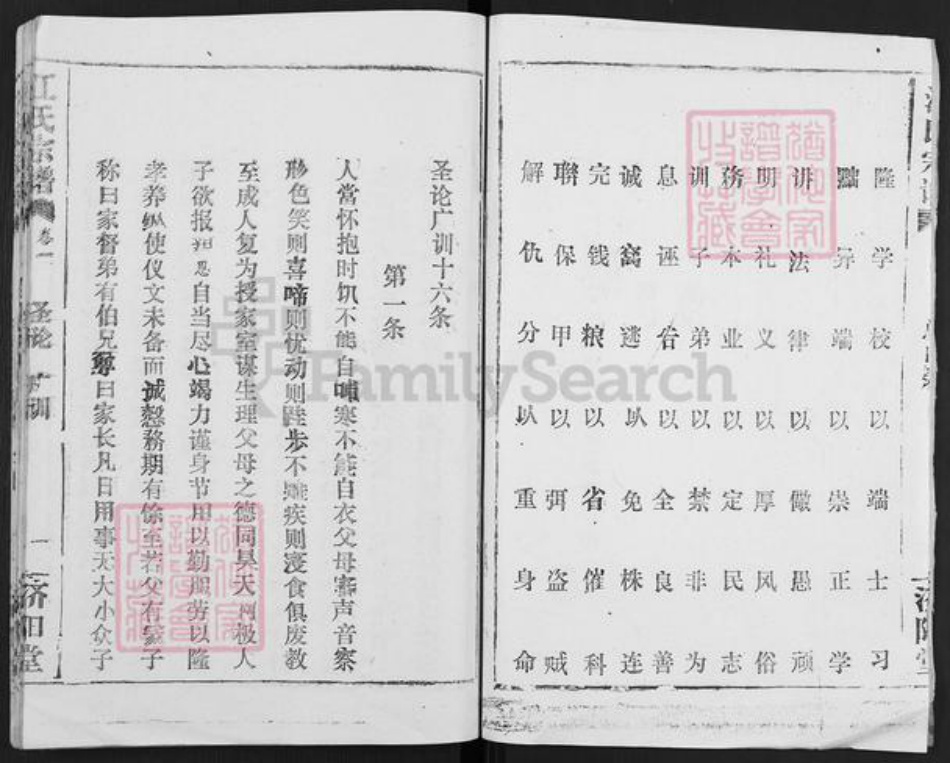 隆学校以端士习
黜异端以崇正学
讲法律以儆愚顽
明礼义以厚风俗
务本业以定民志
训子弟以禁非为
息诬告以全良善
诚窩逃以免株连
完钱粮以省催科
聨保甲以弭盗贼
解仇分以重身命
圣论广训十六条
第一条
人當怀抱时饥不能自哺寒不能自衣父母審声音察
形色笑则喜啼则忧动则跬步不離疾则寝食俱废教
至成人复为授家室谋生理父母之德同昊天罔极人
子欲报恩自当尽心竭力谨身节用以勤服劳以隆
孝养纵使仪文未备而诚慤務期有馀至若父有冢子
称曰家督弟有伯兄尊曰家长凡日用事无大小众子
江氏宗譜
卷一
圣论广训
一
济阳堂
FamilySearch